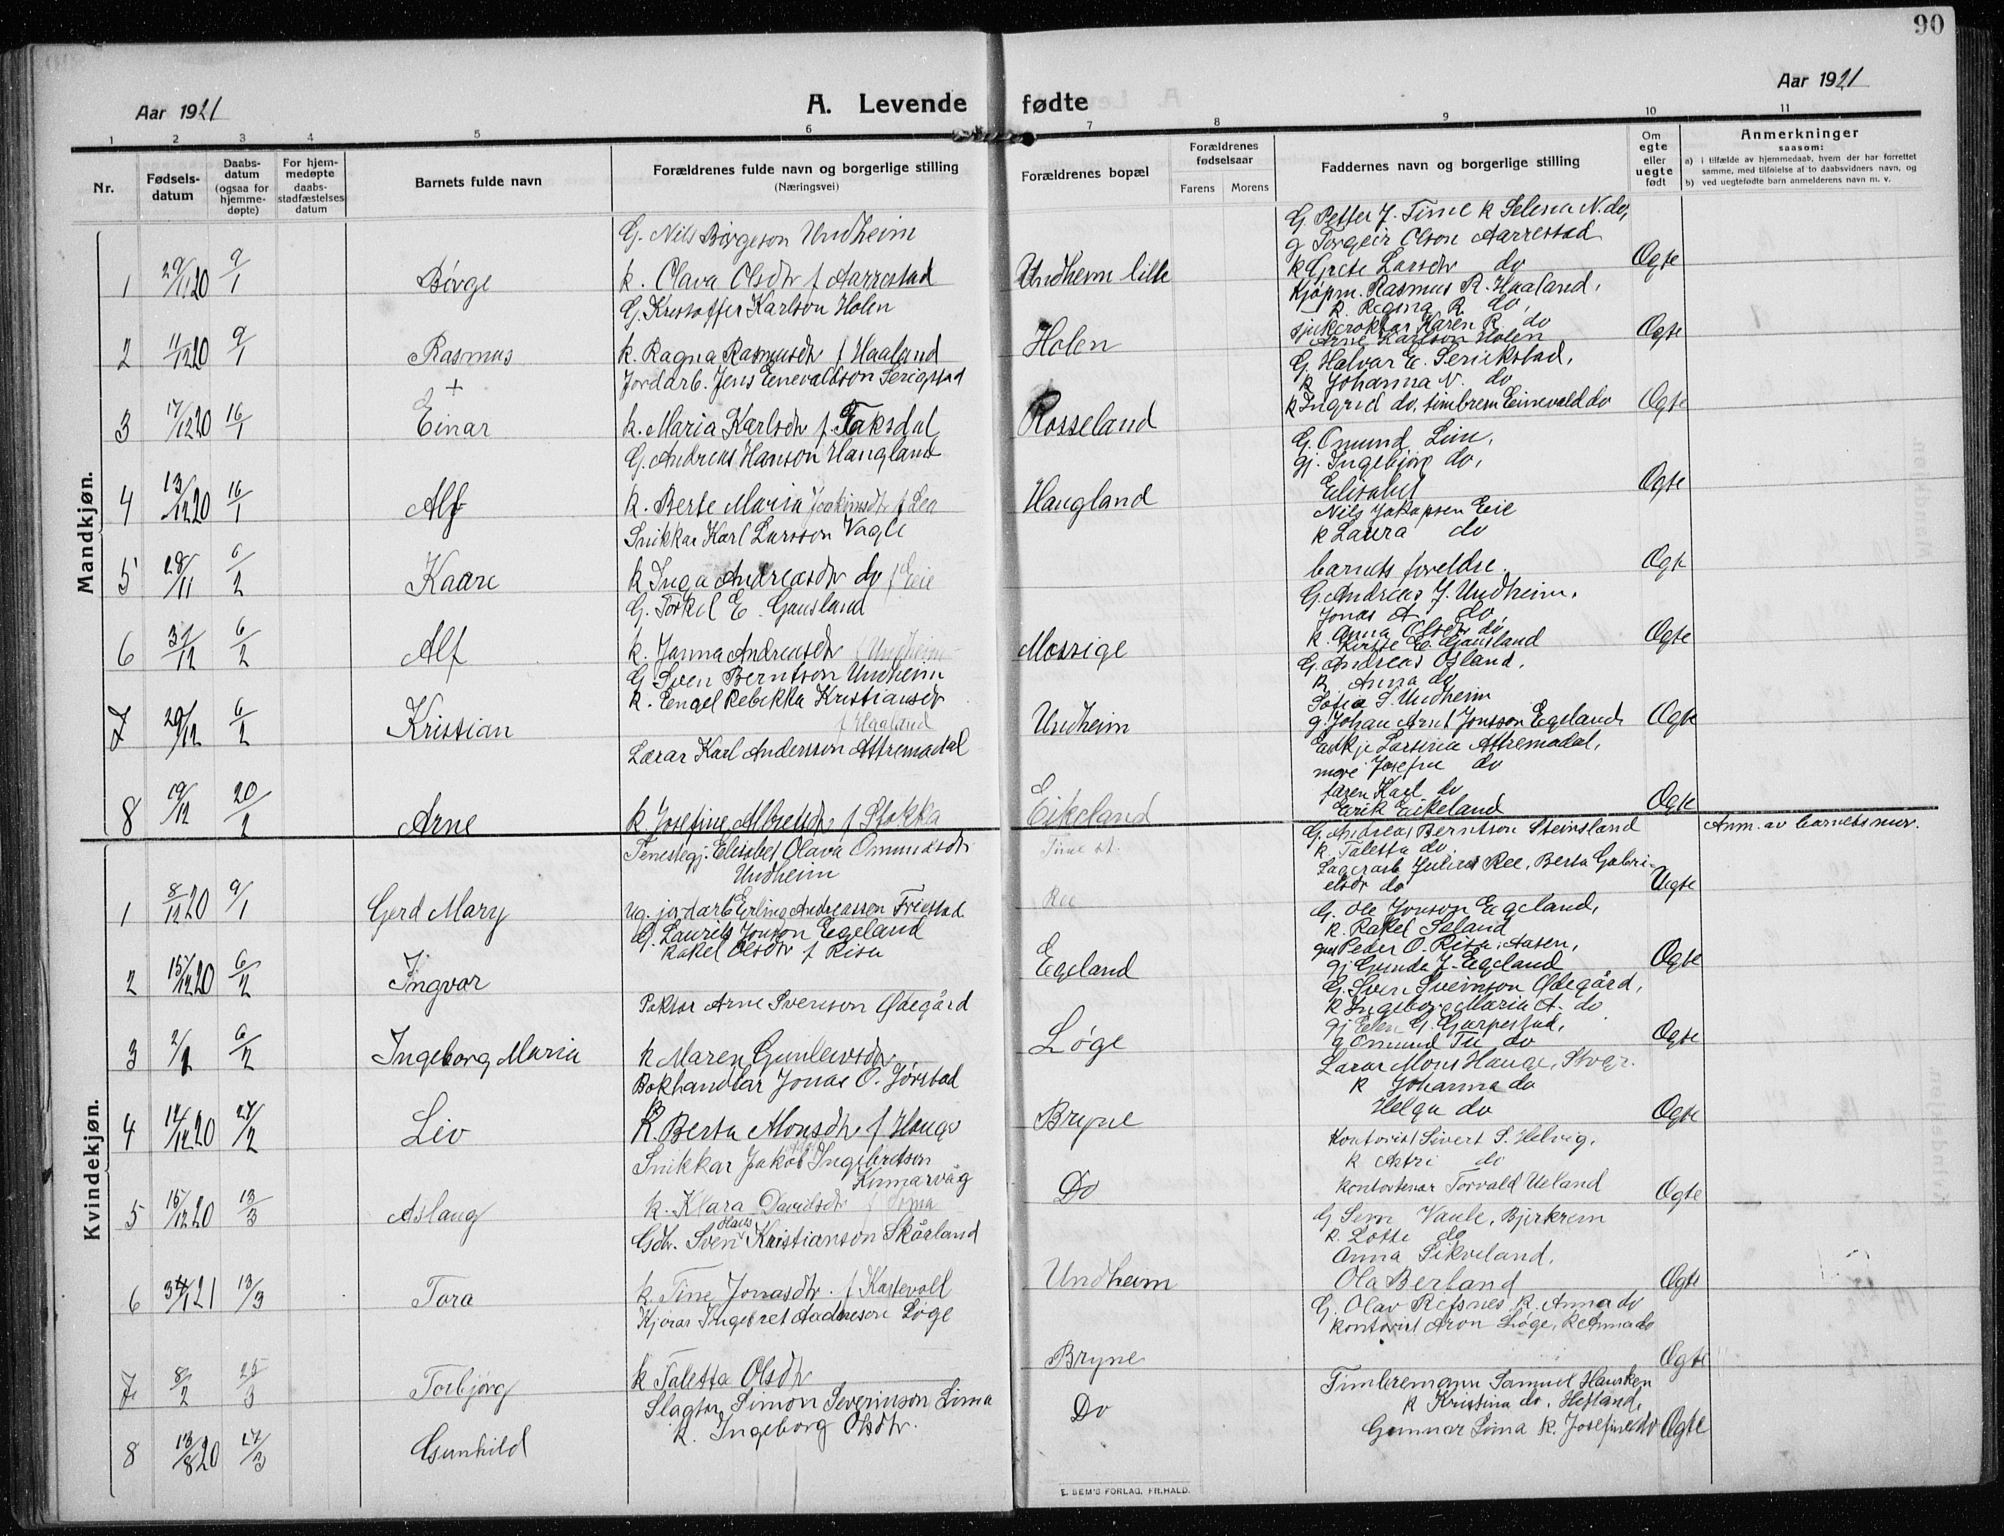 90
Aar 1921
A. Levende fødte
Aar 1921
1 2 3 4 5 6 7 8 9 10 11
Nr.
Fødsels-
datum
Daabs-
datum
(ogsaa for
hjemme-
døpte)
For hjem-
medøpte
daabs-
stadfæstelses
datum
Barnets fulde navn
Forældrenes fulde navn og borgerlige stilling
(Næringsvei)
Forældrenes bopæl
Forældrenes
fødselsaar
Farens Morens
Faddernes navn og borgerlige stilling
Om
egte
eller
uegte
født
Anmerkninger
saasom:
a) i tilfælde av hjemmedaab, hvem der har forrettet
samme, med tilføielse af to daabsvidners navn, og
b) ved uegtefødte barn anmelderens navn m. v.
Mandkjøn.
1 29/11 20 9/1 Børge
G. Nils Børgeson Undheim
k. Olava Olsdtr f Aarrestad
Undheim lille
G. Petter J. Time k Selena N. do,
g Torgeir Olson Aarrestad
k Grete Larsdtr do
Ogte
2 11/12 20 9/1 Rasmus
G. Kristoffer Karlson Holen
k. Ragna Rasmusdtr f Haaland
Holen
Kjøpm. Rasmus R. Haaland,
k. Regina R. do,
sjukerøktar Karen R. do
Arne Karlson Holen
Ogte
3 17/12 20 16/1 Einar
Jordarb. Jens Enevaldson Serigstad
k. Maria Karlsdtr f. Taksdal
Rosseland
G. Halvar E. Serikstad,
k Johanna N. do
k Ingrid do, timbrem Einevald do
Ogte
4 13/12 20 16/1 Alf
G. Andreas Hanson Haugland
k. Berte Maria Joakimsdtr f Lea
Haugland
G. Omund Lim,
gj. Ingebjør do,
Elisabet
Ogte
5 28/11 6/2 Kaare
Snikkar Karl Larsson Vagle
k Inga Andreasdtr do f Eie
Nils Jakopsen Eie
k Laura do
barnets foreldre.
Ogte
6 31/12 6/2 Alf
G. Torkel E. Gausland
k. Janna Andreasdtr f Undheim
Mossige
G. Andreas J. Undheim,
Jonas A. do
k. Anna Olsdtr do
Kirste E. Gausland
Ogte
7 29/12 6/2 Kristian
G Sven Berntson Undheim
k. Engel Rebekka Kristiansdtr
f Haaland
Undheim
G. Andreas Osland,
k Anna do
Sofia S. Undheim
g. Johan Arnt Jonsson Egeland
Ogte
8 19/12 20/2 Arne
Lærar Karl Andersson Attremadal
k Josefine Albretsdtr f Stokka
Eikeland
Enkje Larsina Attremadal,
more Josefine do
faren Karl do
Erik Eikeland
Ogte
Kvindekjøn.
1 8/12 20 9/1 Gerd Mary
Tenestegj. Elisabet Olava Omundsdtr
Undheim
ug. jordarb Erling Andreassen Friestad
Time st.
Ree
G. Andreas Berntson Steinsland
k. Taletta do
Lagerarb Julius Ree, Berta Gabri-
elsdr do
Uegte
Anm. av barnets mor.
2 15/12 20 6/2 Ingvar
G. Laurits Jonson Egeland
Rakel Olsdtr f Risa
Egeland
G. Ole Jonson Egeland,
k. Rakel Saland
Peder O. Risa, Aasen,
gj Gunda J. Egeland
Ogte
3 2/1 6/2 Ingeborg Maria
Paktar Arne Svenson Ødegård
k Maren Gunlevsdtr
Løge
G. Sven Sveinson Ødegård,
k Ingeborg Maria A. do
gj Elen G. Gjerpestad,
g Omund Tu do
Ogte
4 14/12 20 27/2 Liv
Bokhandlar Jonas O. Jørstad
k. Berta Monsdtr f Hauge
Bryne
Lærar Mons Hauge, Stvgr.
k Johanna do
Helga do
Ogte
5 15/12 20 13/3 Aslaug
Snikkar Jakob Ingebretson
Kinnarvåg
k. Klara Davidsdtr f Soma
Do
Kontorist Sivert S. Helvig,
k Astri do
Kontortenar Torvald Ueland
Ogte
6 31/1 21 13/3 Tora
Gdbr. Sven Hans Kristianson Skårland
k. Tine Jonasdtr f Kartevoll
Undheim
G Sem Vaule, Bjerkreim
k. Lotte do
Anna Sikveland,
Ola Berland
Ogte
7 8/2 25/3 Torbjørg
Kjørar Ingebret Aadneson Løge
k Taletta Olsdtr
Bryne
G. Olav Refsnes k. Anna do
Kontorist Aron Løge, k Anna do
Ogte
8 13/8 20 27/3 Gunhild
Slagtar Simon Severinson Lima
k. Ingeborg Olsdtr.
Do
Timbremann Samuel Hausken
k Kristina do, Hetland,
Gunnar Lima k. Josefine do
Ogte
E. SEM'S FORLAG, FR.HALD.